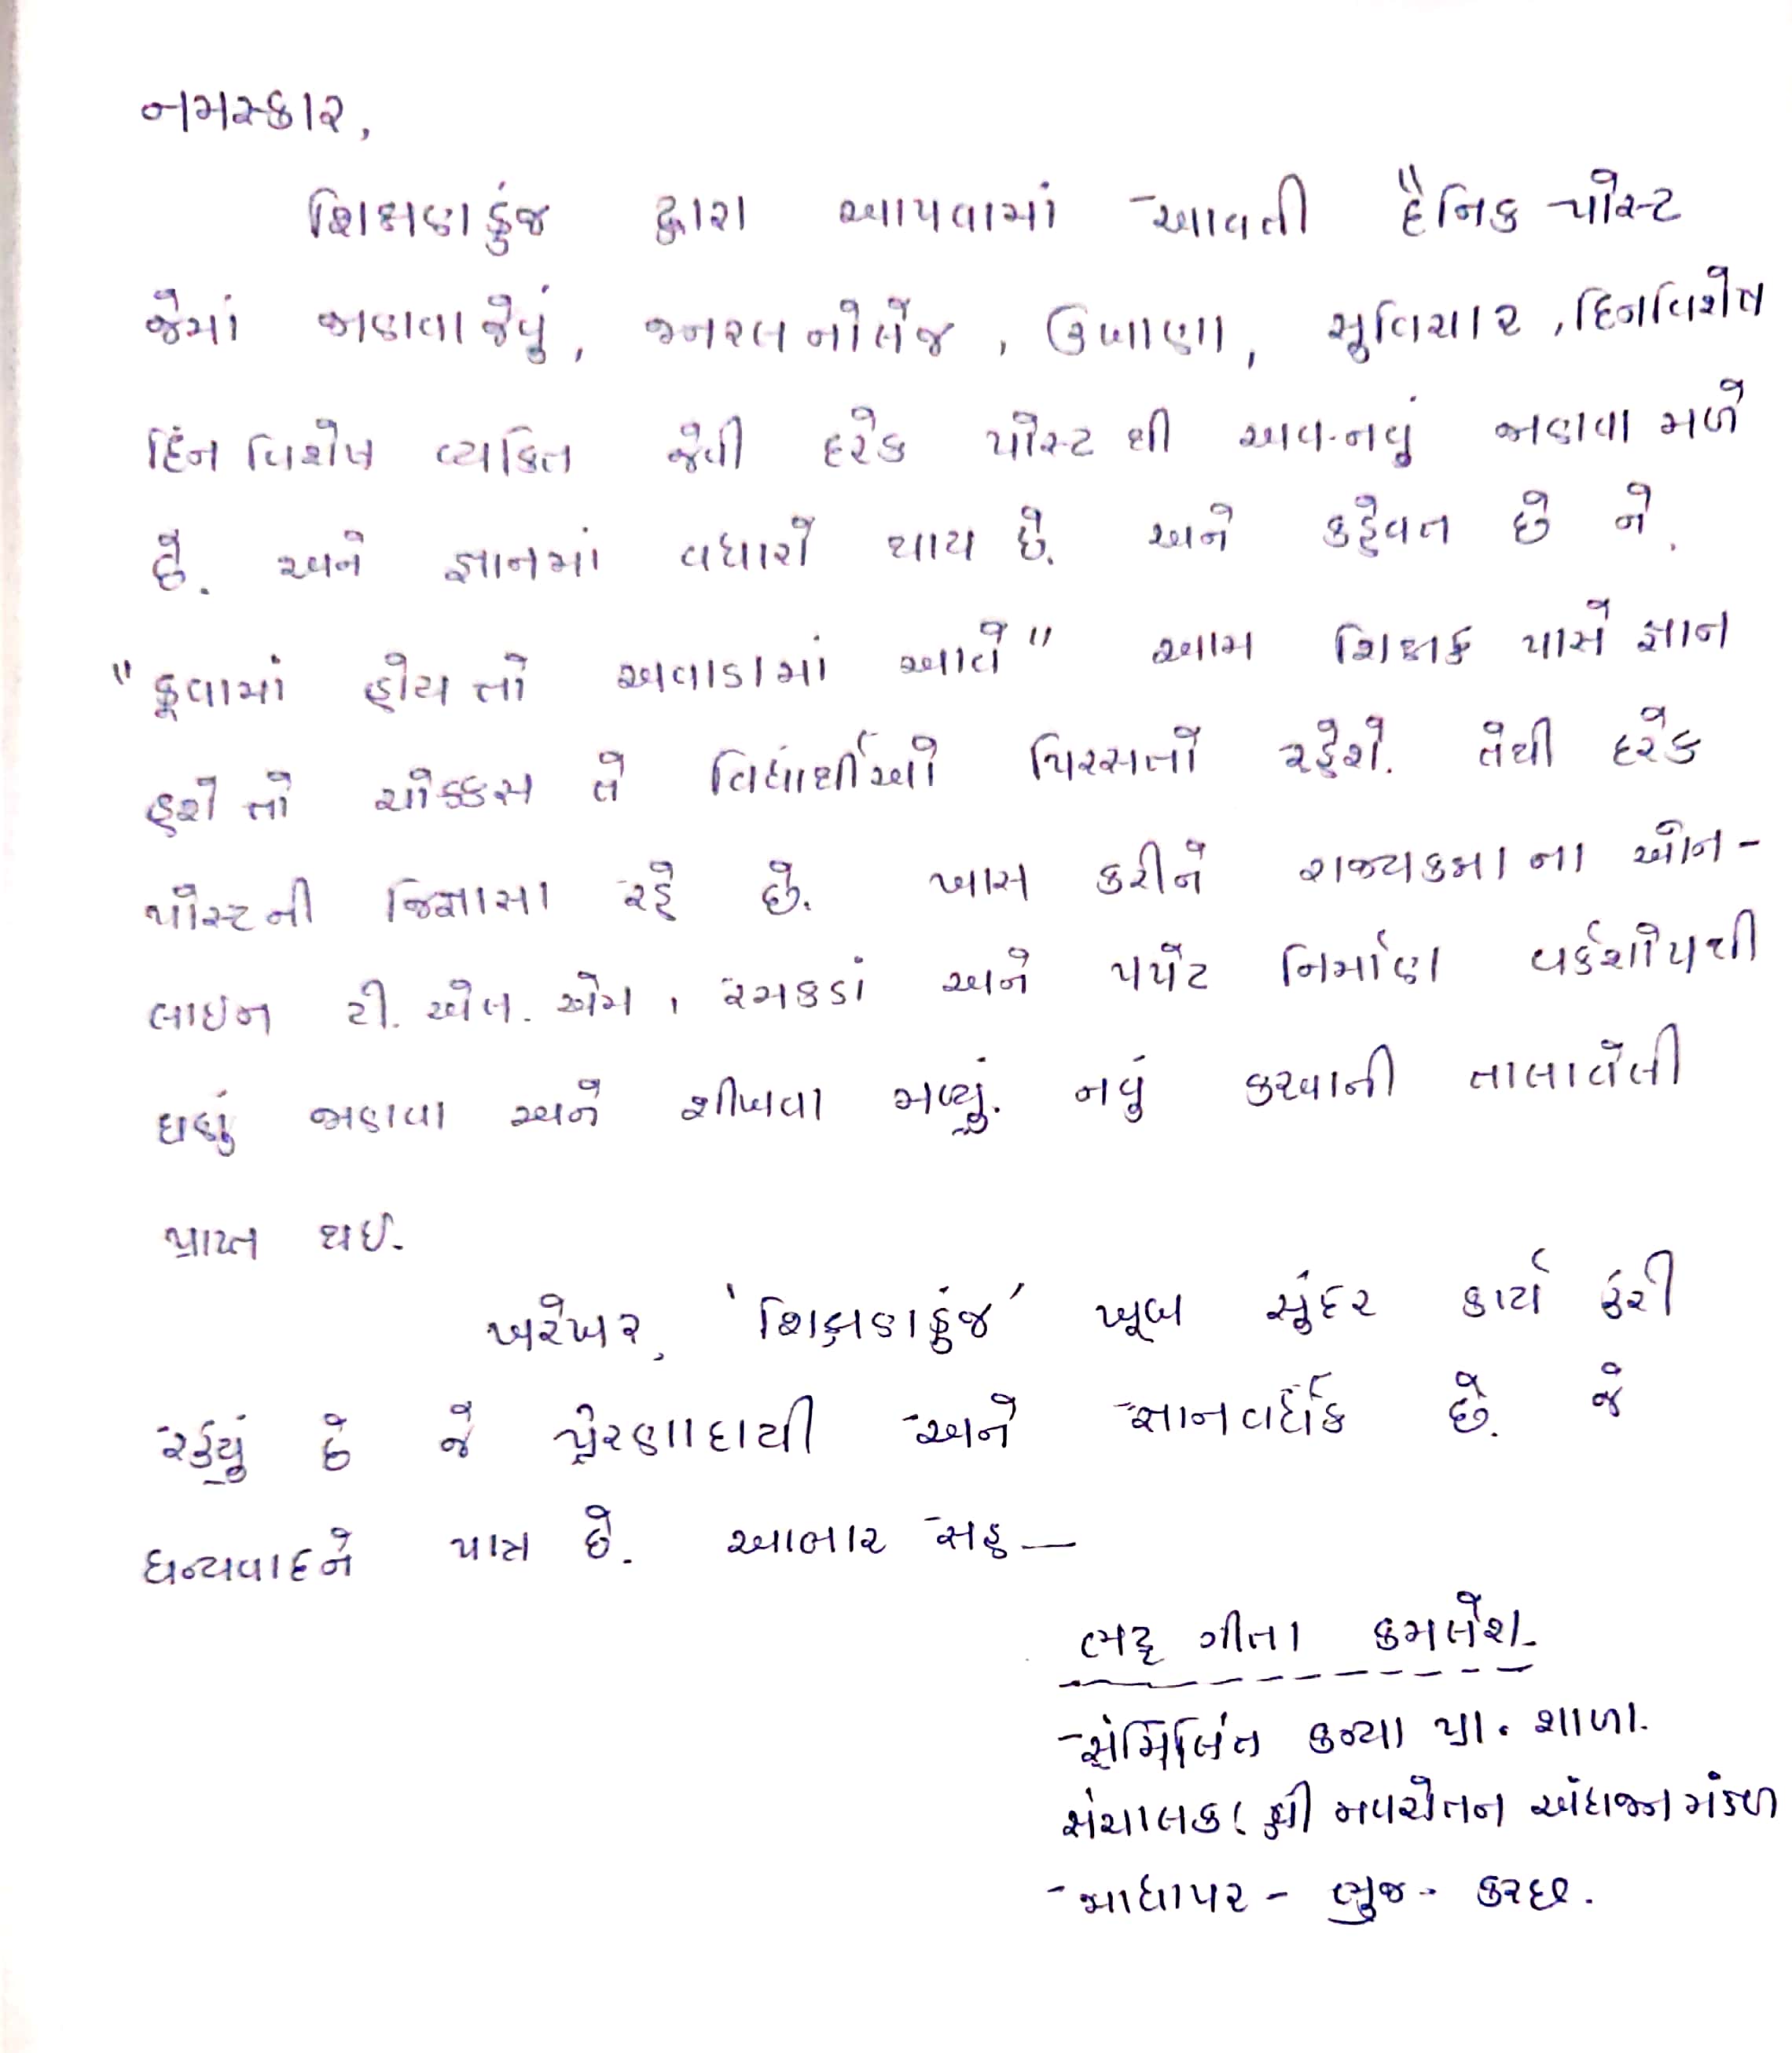 નમસ્કાર,
શિક્ષણકુંજ દ્વારા આપવામાં આવતી દૈનિક પોસ્ટ
જેમાં જાણવા જેવું, જનરલ નોલેજ, ઉખાણા, સુવિચાર, દિનવિશેષ
દિન વિશેષ વ્યકિત જેવી દરેક પોસ્ટ થી અવ-નવું જાણવા મળે
છે. અને જ્ઞાનમાં વધારો થાય છે. અને કહેવત છે ને,
"કૂવામાં હોય તો અવાડામાં આવે" આમ શિક્ષક પાસે જ્ઞાન
હશે તો ચોક્કસ તે વિદ્યાર્થીઓને પિરસતો રહેશે. તેથી દરેક
પોસ્ટની જિજ્ઞાસા રહે છે. ખાસ કરીને રાજ્યકક્ષાના ઓન-
લાઇન ટી. એલ. એમ, રમકડાં અને પપેટ નિર્માણ વર્કશોપથી
ઘણું જાણવા અને શીખવા મળ્યું. નવું કરવાની તાલાવેલી
પ્રાપ્ત થઈ.
ખરેખર, 'શિક્ષણકુંજ' ખૂબ સુંદર કાર્ય કરી
રહ્યું છે જે પ્રેરણાદાયી અને જ્ઞાનવર્ધક છે. જે
ધન્યવાદને પાત્ર છે. આભાર સહ —
ભટ્ટ ગીતા કમલેશ
સંમિલિત કન્યા પ્રા. શાળા.
સંચાલક: શ્રી નવચેતન અંધજન મંડળ
માધાપર - ભુજ - કચ્છ.